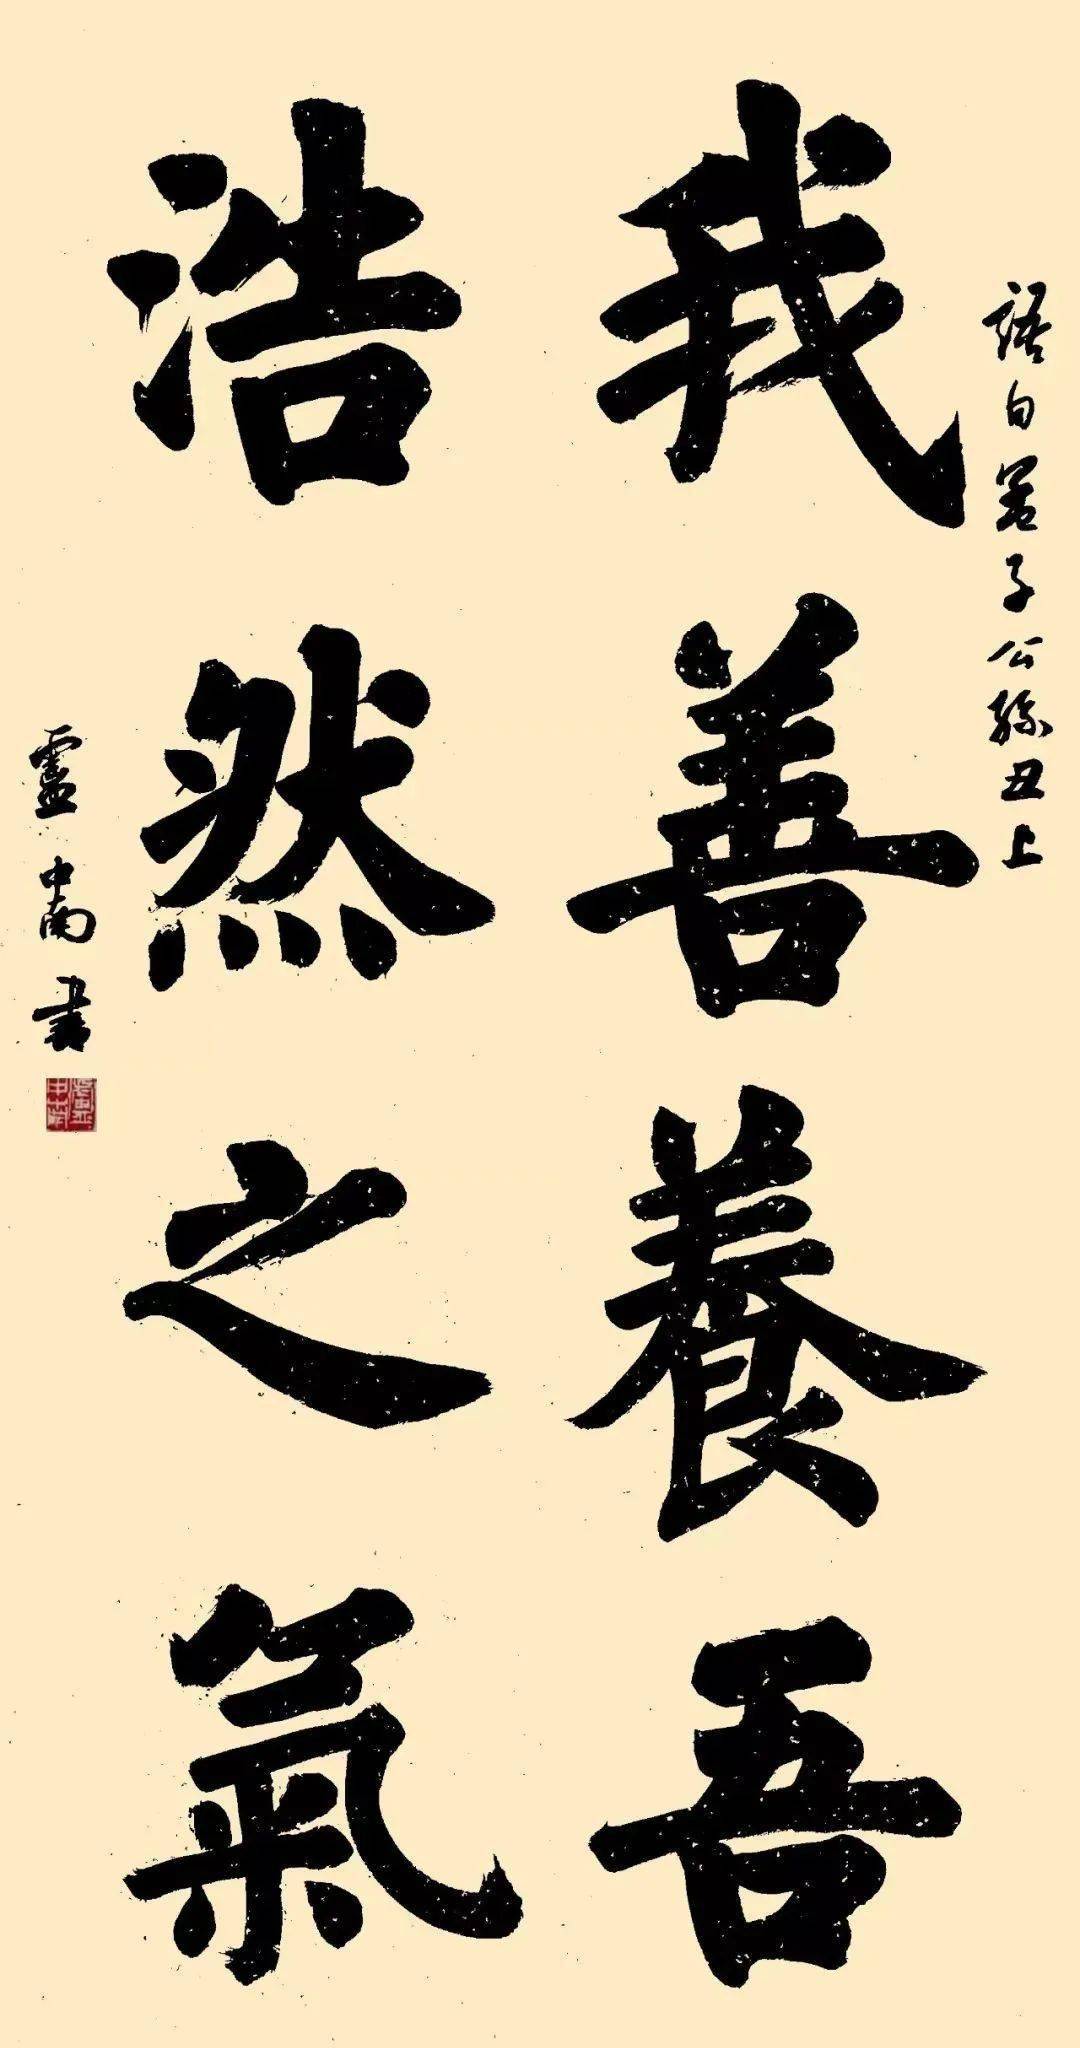 語句孟子公孫丑上
我善養吾
浩然之氣
盧中南書
盧中南